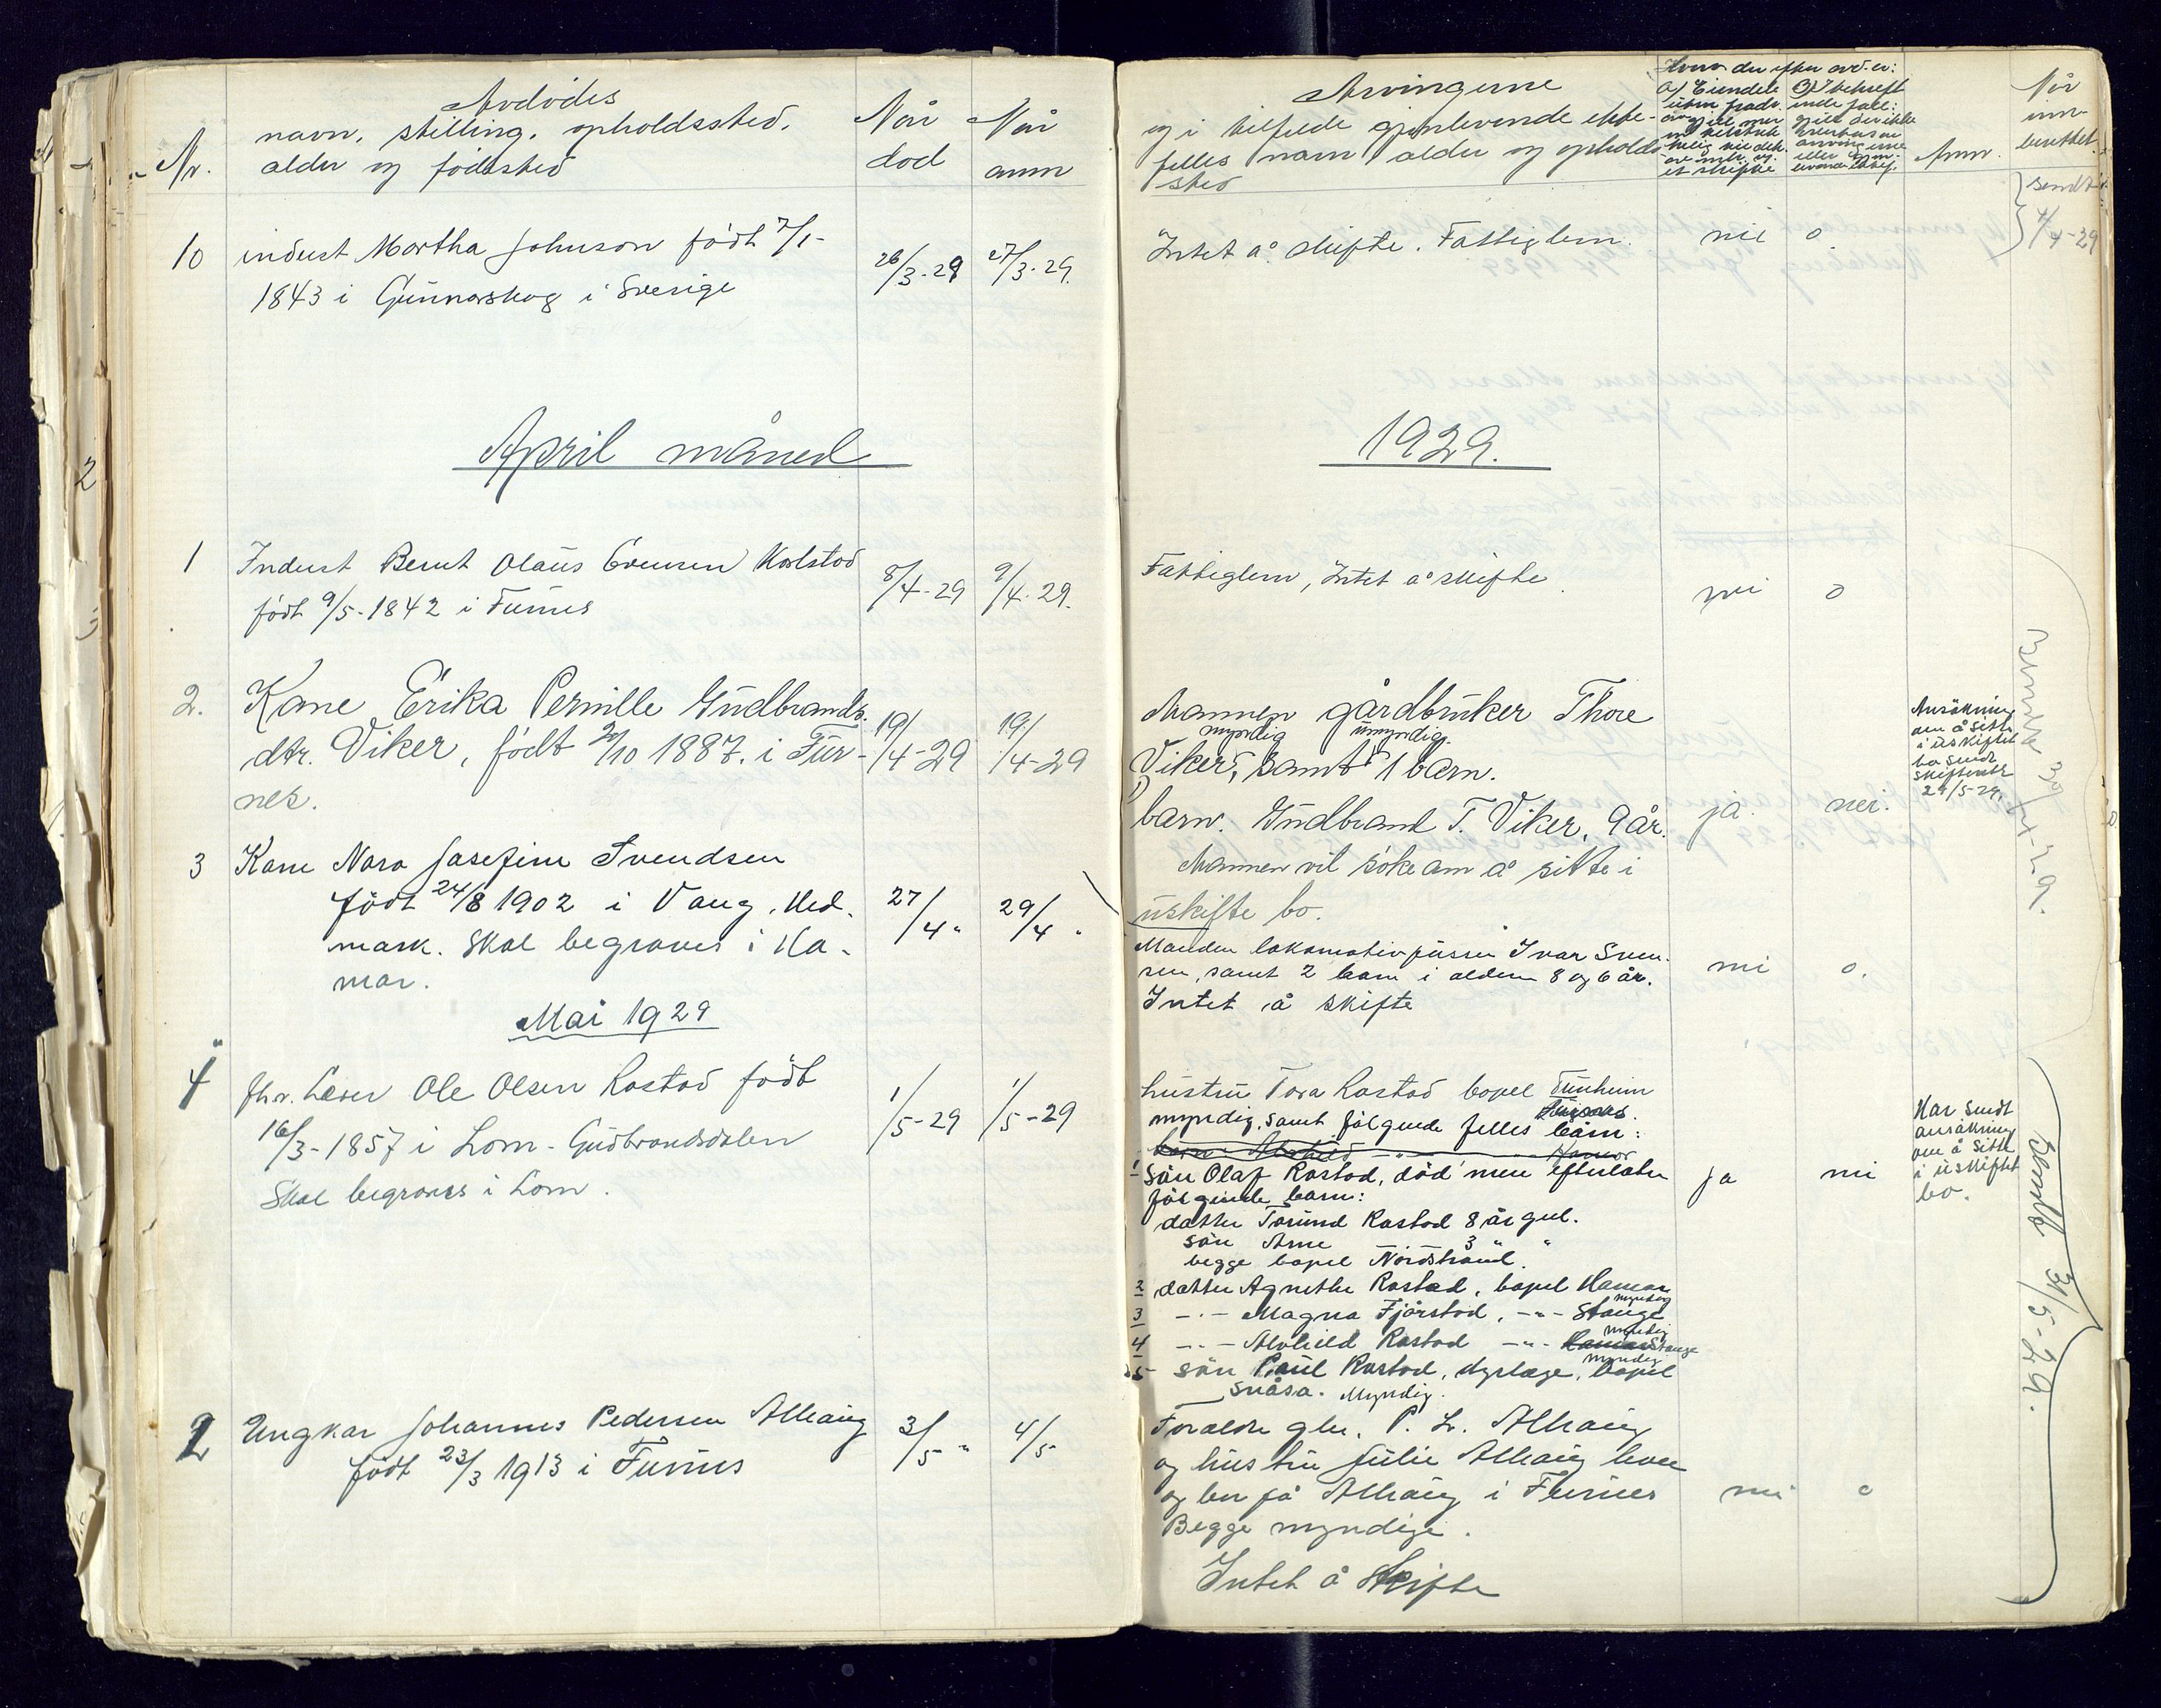 Nr.
Avdødes
navn, stilling, opholdssted,
alder og fødested
Når
død
Når
anm
Arvingerne
og i tilfelde gjenlevende ekte-
felles navn alder og opholds
sted
Anm.
Når
inn-
berettet.
10 indust Martha Johnson født 7/1-
1843 i Gunnarskog i Sverige
26/3-29 27/3-29.
Intet å skifte. Fattiglem. nei o
sendt
4/4-29
April måned 1929.
1 Indust Bernt Olaus Evensen Kolstad
født 9/5-1842 i Furnes
8/4-29 9/4-29.
Fattiglem, Intet å skifte. nei o
2. Kone Erika Pernille Gudbrands.
dtr. Viker, født 20/10 1887. i Fur-
nes.
19/4-29 19/4-29
Mannen gårdbruker Thore
myndig umyndig.
Viker, samt 1 barn.
1) barn. Gudbrand T. Viker, 9 år. ja. nei.
Mannen vil søke om å sitte i
uskifte bo.
Ansøkning
om å sitte
i uskiftet
bo sendt
skifteretten
29/5-29.
3 Kone Nora Josefine Svendsen
født 24/8 1902 i Vang, Hed-
mark. Skal begraves i Ha-
mar.
27/4 " 29/4 "
Manden lokomotivpusser Ivar Svend-
sen, samt 2 barn i alderen 8 og 6 år. nei o.
Intet å skifte
Mai 1929
1 fhv. Lærer Ole Olsen Rastad født
16/3-1857 i Lom-Gudbrandsdalen
Skal begraves i Lom.
1/5-29 1/5-29
hustru Tora Rastad bopel Tunheim
Furnes.
myndig, samt følgende felles barn:
1 Søn Olaf Rastad, død men efterlater
følgende barn:
datter Torund Rastad 8 år gul.
søn Arne 3 " "
begge bopel Nordstrand.
2 datter Agnethe Rastad, bopel Hamar
myndig
3 -"- Magna Fjørstad, -"- Stange
myndig
4 -"- Alvhild Rastad -"- Hamar Stange
myndig
5 søn Paul Rastad, dyrlæge, bopel
Snåsa. Myndig.
ja nei
Har sendt
ansøkning
om å sitte
i uskiftet
bo.
Sendt 31/5-29.
2 Ungkar Johannes Pedersen Alhaug
født 23/3 1913 i Furnes
3/5 " 4/5
Foreldre gbr. P. L. Alhaug
og hustru Julie Alhaug lever
og bor på Alhaug i Furnes nei o
Begge myndige.
Intet å skifte